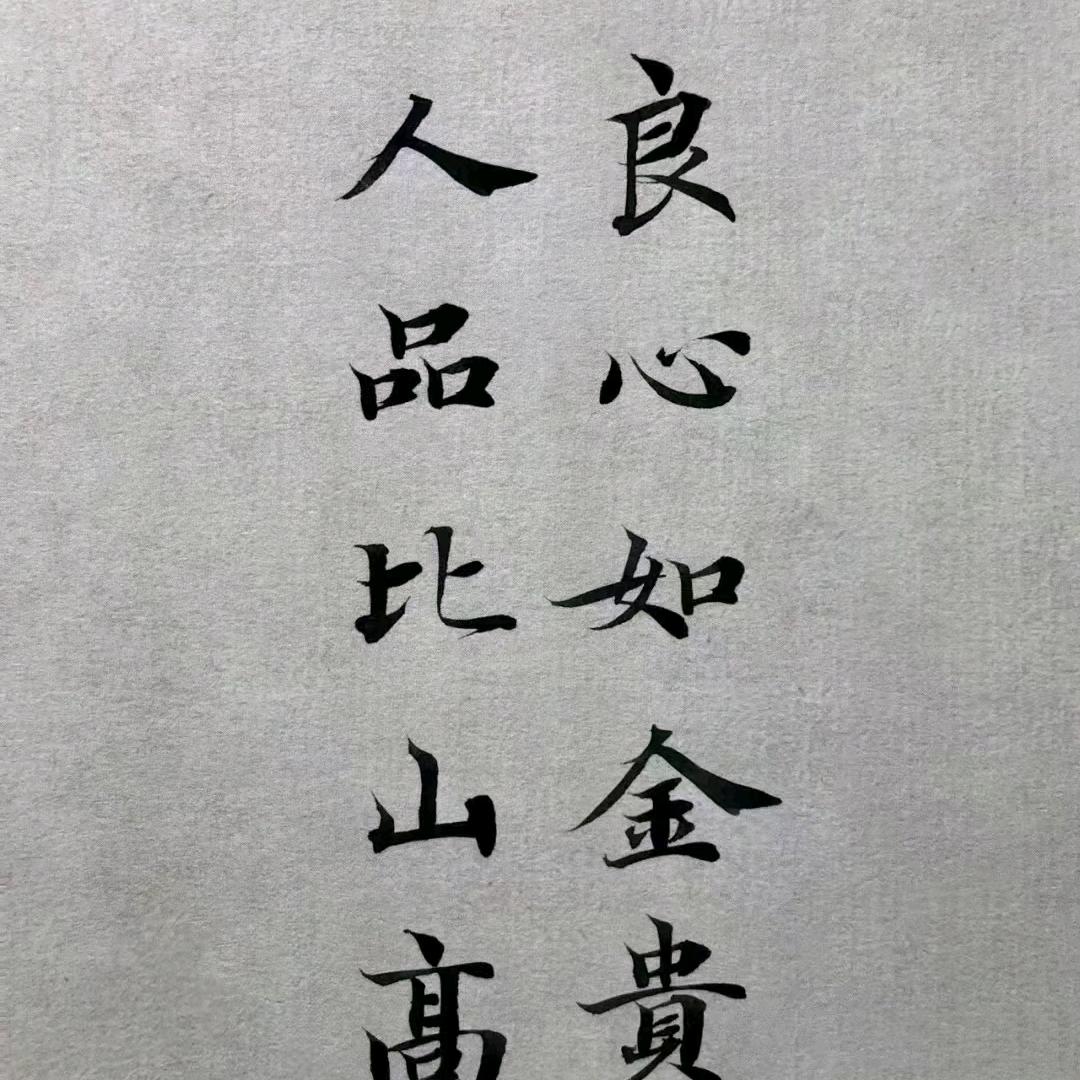 良心如金貴
人品比山髙